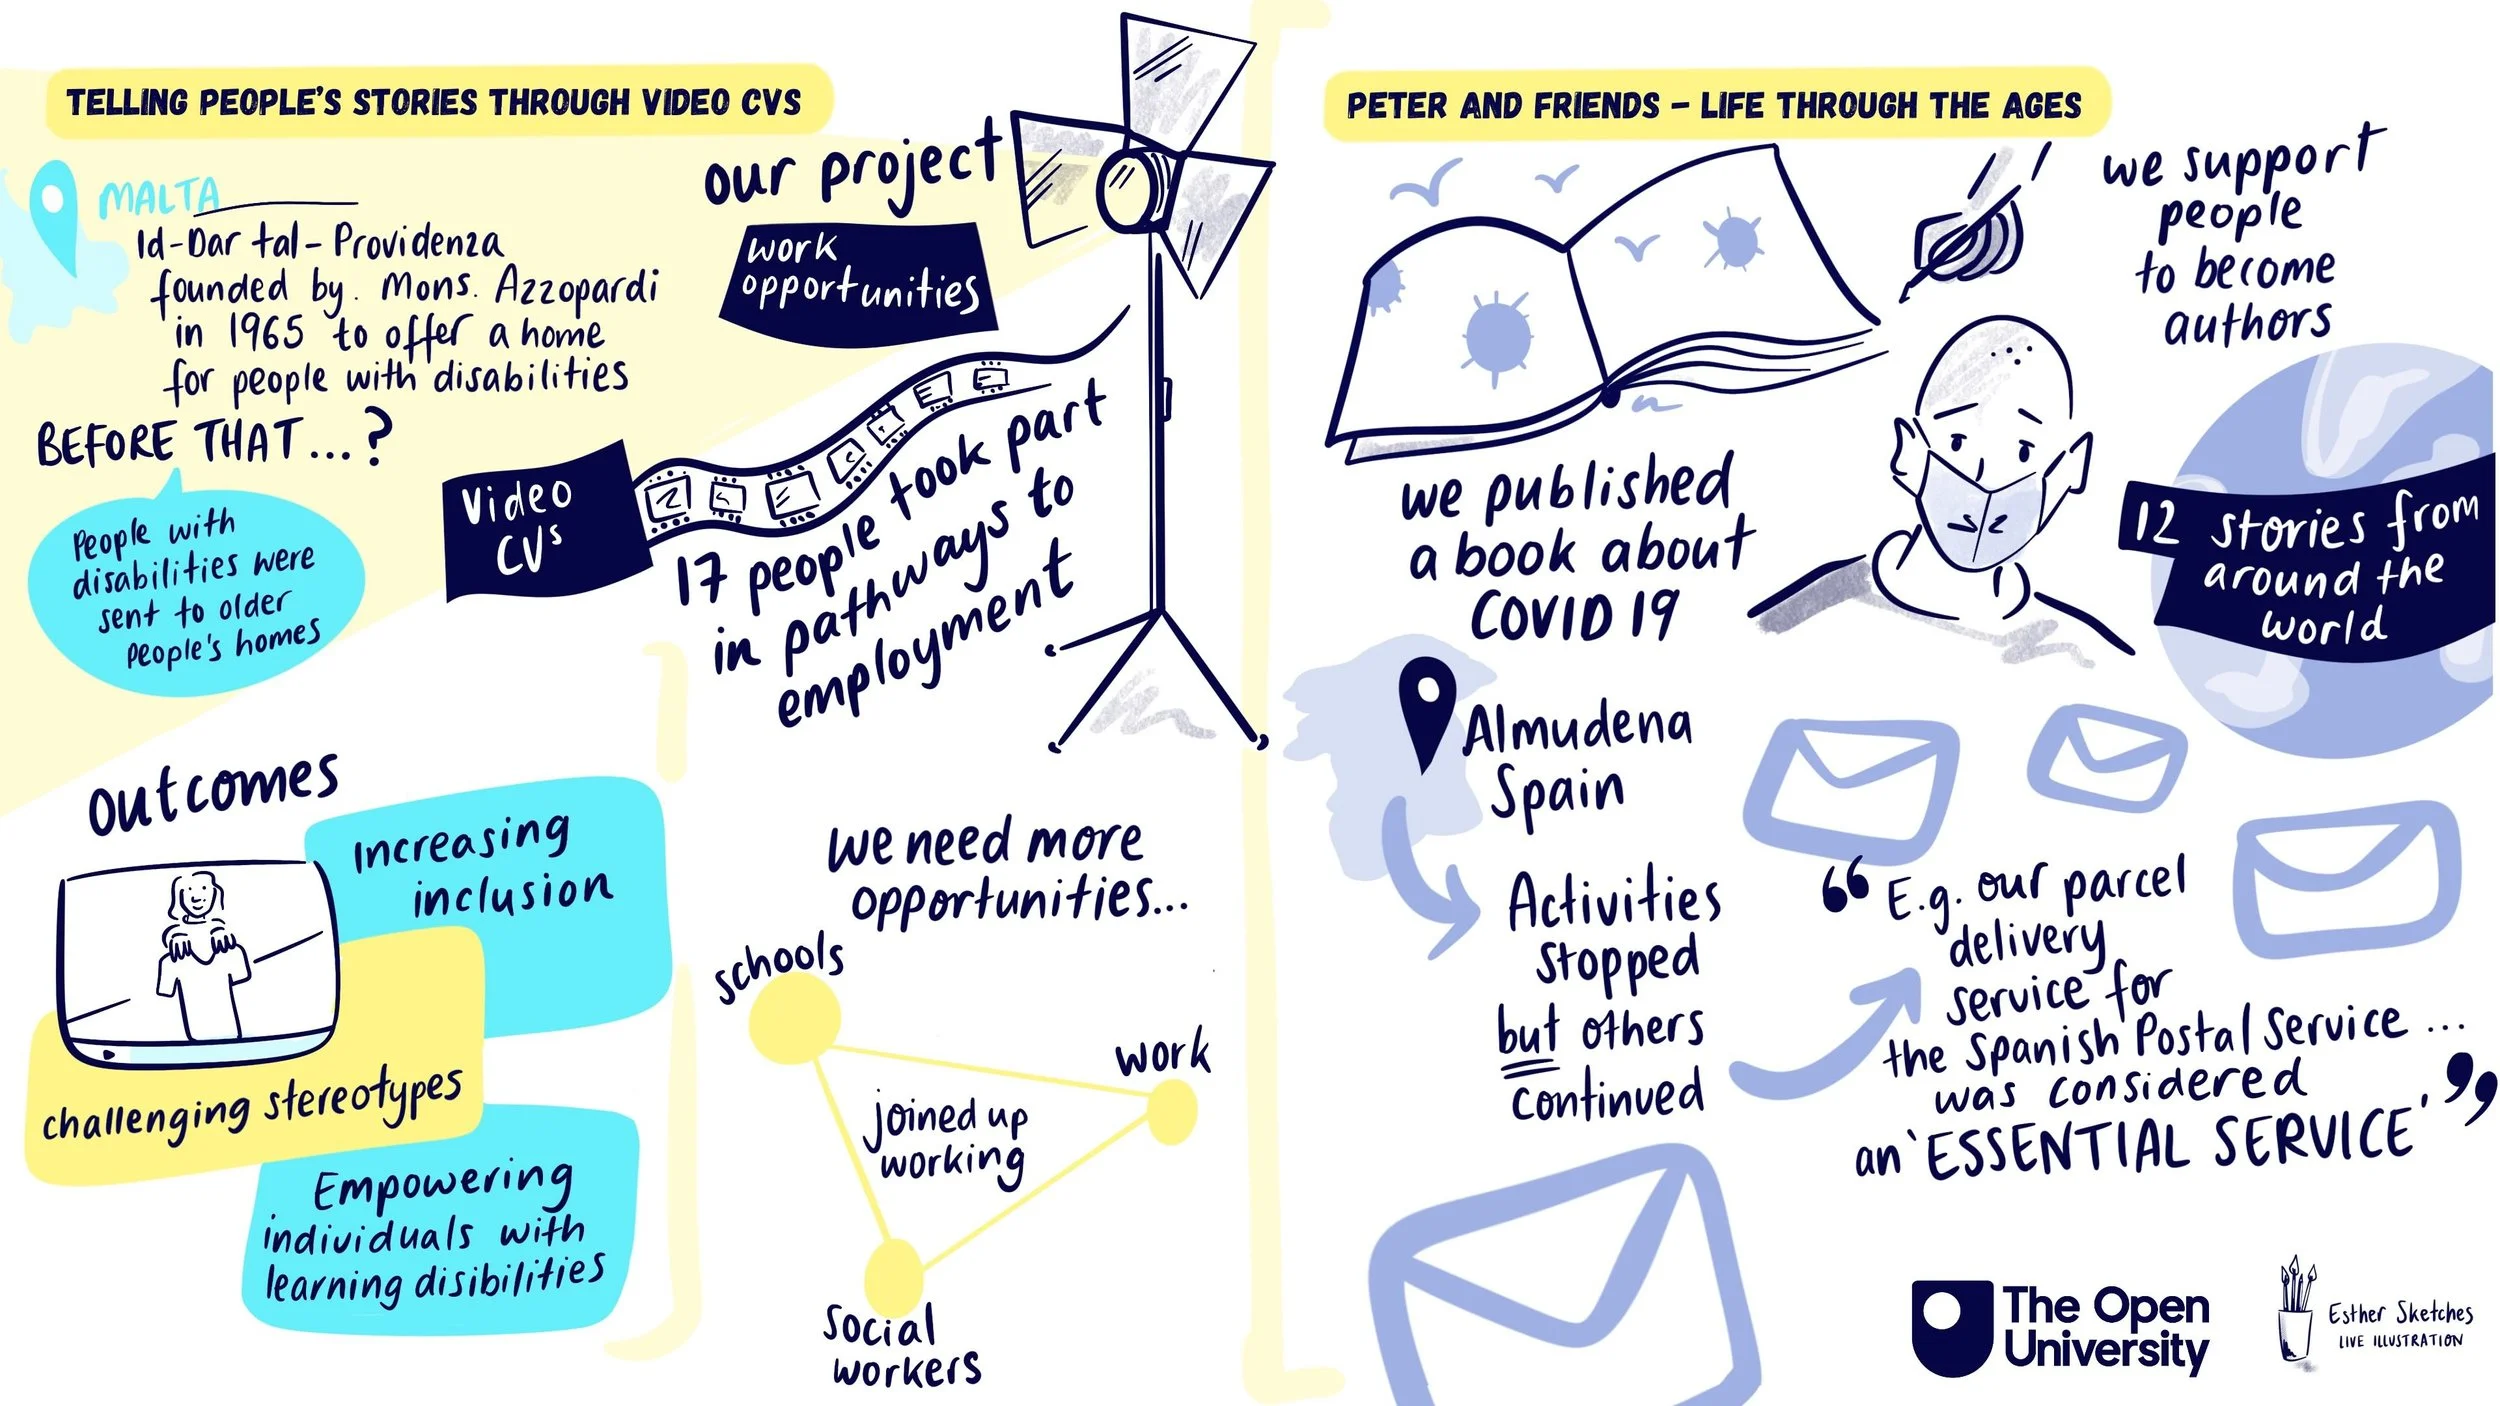 TELLING PEOPLE'S STORIES THROUGH VIDEO CVS
MALTA
Id-Dar tal-Providenza
founded by. Mons. Azzopardi
in 1965 to offer a home
for people with disabilities
BEFORE THAT...?
People with
disabilities were
sent to older
People's homes
our project
work
opportunities
Video
CVs
17 people took part
in pathways to
employment
outcomes
Increasing
inclusion
challenging stereotypes
Empowering
individuals with
learning disibilities
We need more
opportunities...
schools
work
joined up
working
Social
workers
PETER AND FRIENDS – LIFE THROUGH THE AGES
we support
people
to become
authors
we published
a book about
COVID 19
12 stories from
around the
world
Almudena
Spain
Activities
stopped
but others
continued
“ E.g. our parcel
delivery
service for
the Spanish Postal Service ...
was considered
an 'ESSENTIAL SERVICE' ”
The Open
University
Esther Sketches
LIVE ILLUSTRATION